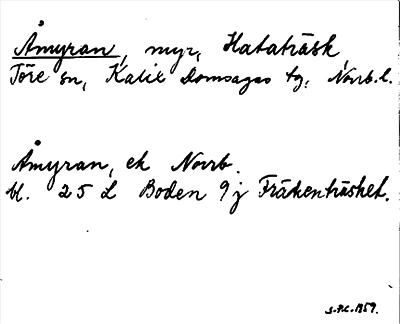 Åmyran, myr, Hataträsk,
Töre sn, Kalix domsagas tg, Norrb. l.
Åmyran, ek Norrb.
bl. 25 L Boden 9 j Fräkenträsket.
S.P.L. 1959.